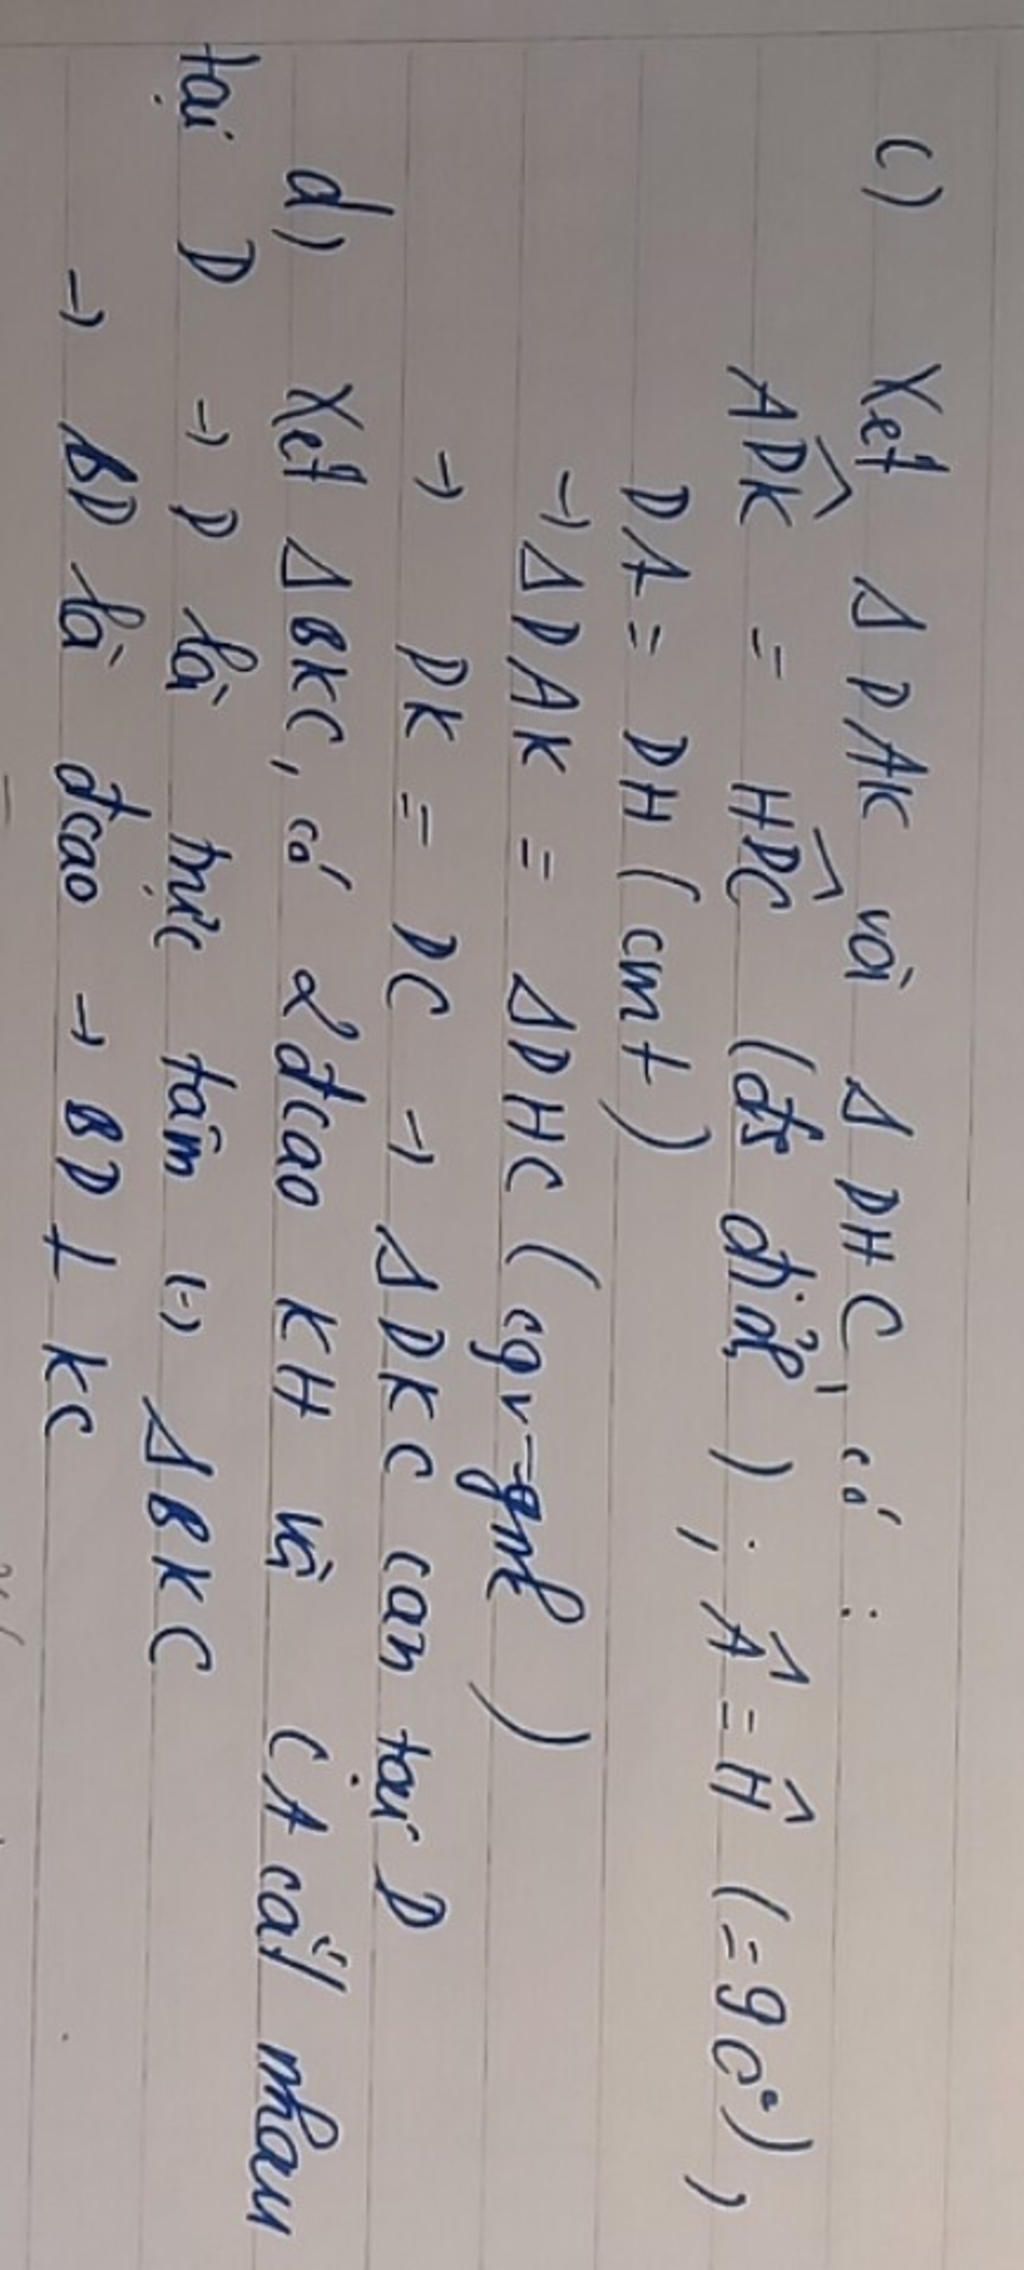 c) Xét Δ DAK và Δ DHC, có :
ADK̂ = HDĈ (đ² đỉnh) ; Â = Ĥ (=90°),
DA = DH (cmt)
→ Δ DAK = Δ DHC (cgv-gnk)
→ DK = DC → Δ DKC can tại D
d) Xét Δ BKC, có 2 đcao KH và CA cắt nhau
tại D → D là trực tâm → Δ BKC
→ BD là đcao → BD ⊥ KC